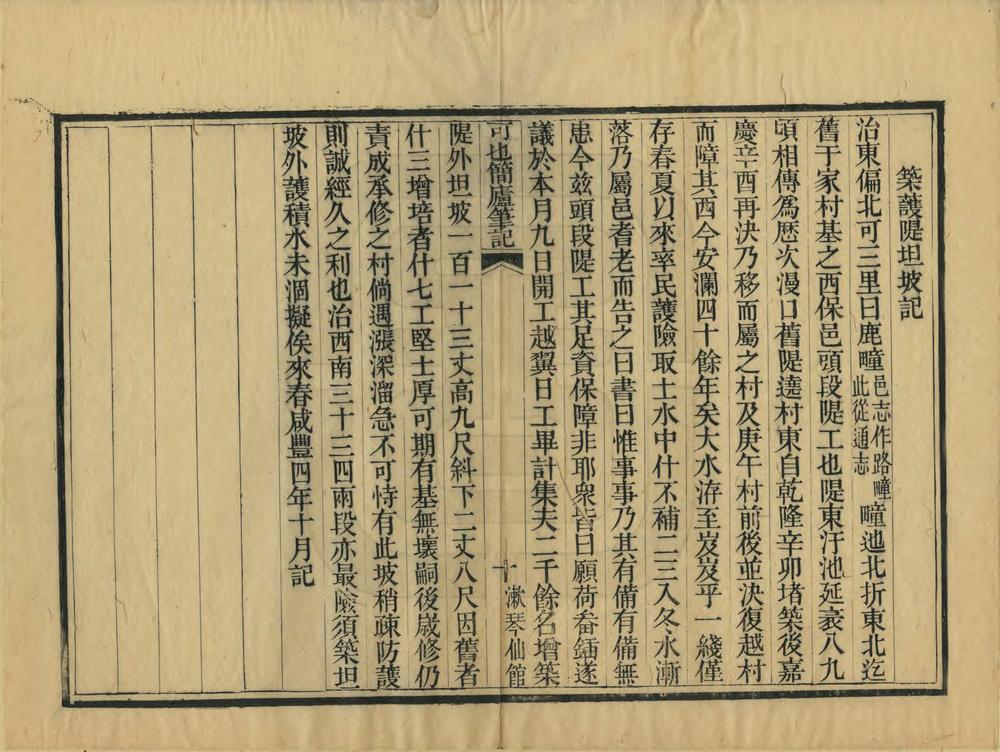 築護隄坦坡記
治東偏北可三里曰鹿疃邑志作路疃此從通志疃迤北折東北迄
舊于家村基之西保邑頭段隄工也隄東汙池延袤八九
頃相傳爲歷次漫口舊隄遶村東自乾隆辛卯堵築後嘉
慶辛酉再決乃移而屬之村及庚午村前後並決復越村
而障其西今安瀾四十餘年矣大水洊至岌岌乎一綫僅
存春夏以來率民護險取土水中什不補二三入冬水漸
落乃屬邑耆老而告之曰書曰惟事事乃其有備有備無
患今茲頭段隄工其足資保障非耶衆皆曰願荷畚鍤遂
議於本月九日開工越翼日工畢計集夫二千餘名增築
可也簡廬筆記
十
漱琴仙館
隄外坦坡一百一十三丈高九尺斜下二丈八尺因舊者
什三增培者什七工堅土厚可期有基無壞嗣後歲修仍
責成承修之村倘遇漲深溜急不可恃有此坡稍疎防護
則誠經久之利也治西南三十三四兩段亦最險須築坦
坡外護積水未涸擬俟來春咸豐四年十月記